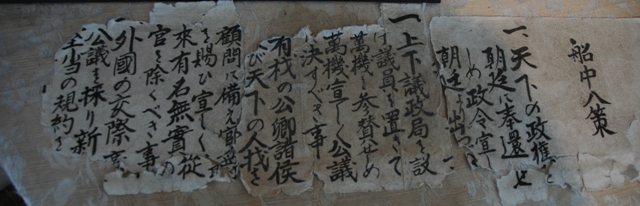 船中八策
一、天下の政権を
朝廷に奉還せ
しめ政令宜し
朝廷より出つべ
一、上下議政局を設
け議員を置きて
萬機を参賛せしめ
萬機宜しく公議
決すべき事
有材の公卿諸侯
び天下の人材を
顧問に備え官爵
を賜ひ宜しく
来有名無實の
官を除くべき事
一、外國の交際
公議を採り新
至当の規約を